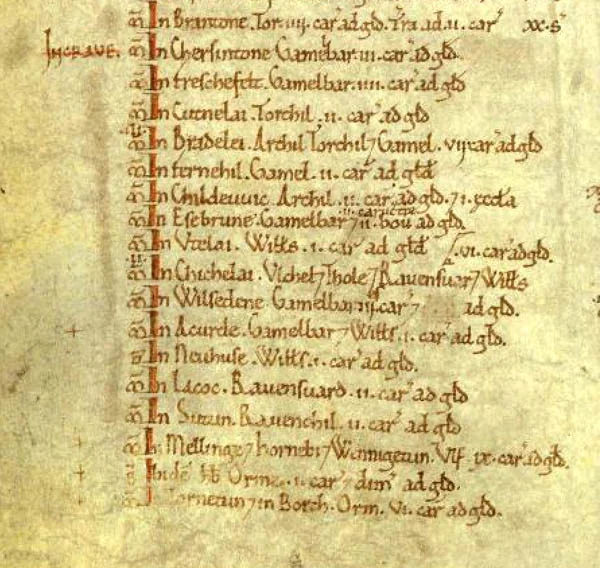 In Brantone. Tor. iiij. car' ad gld. Tra. ad. ii. car' xx. s'
IN CRAVE. In Chersintone Gamelbar. iii. car' ad gld.
In Freschefelt. Gamelbar. iiii. car' ad gld
In Cutnelai. Torchil. ii. car' ad gld
In Bradelei. Archil Torchil ⁊ Gamel. vij car' ad gld
In fernehil. Gamel. ii. car' ad gld
In Childeuuic. Archil. ii. car' ad gld. ⁊ i. æccła
In Esebrune. Gamelbar ⁊ ii. bou' ad gld.
In Utelai. Wills. i. car' ad gld vi. car' ad gld.
In Chichelai. Ulchel ⁊ Thole ⁊ Rauensuar ⁊ Wills
In Wilsedene. Gamelbar iii. car' ⁊ ad gld.
In Acurde. Gamelbar ⁊ Wills. i. car' ad gld.
In Neuhuse. Wills. i. car' ad gld.
In Lacoc. Rauensuard. ii. car' ad gld
In Sutun. Rauenchil. ii. car' ad gld
In Mellinge ⁊ hornebi ⁊ Wenningetun. Ulf. ix. car' ad gld.
Ibide hb Orme. i. car' ⁊ dim' ad gld.
Tornetun ⁊ in Borch. Orm. vi. car' ad gld.